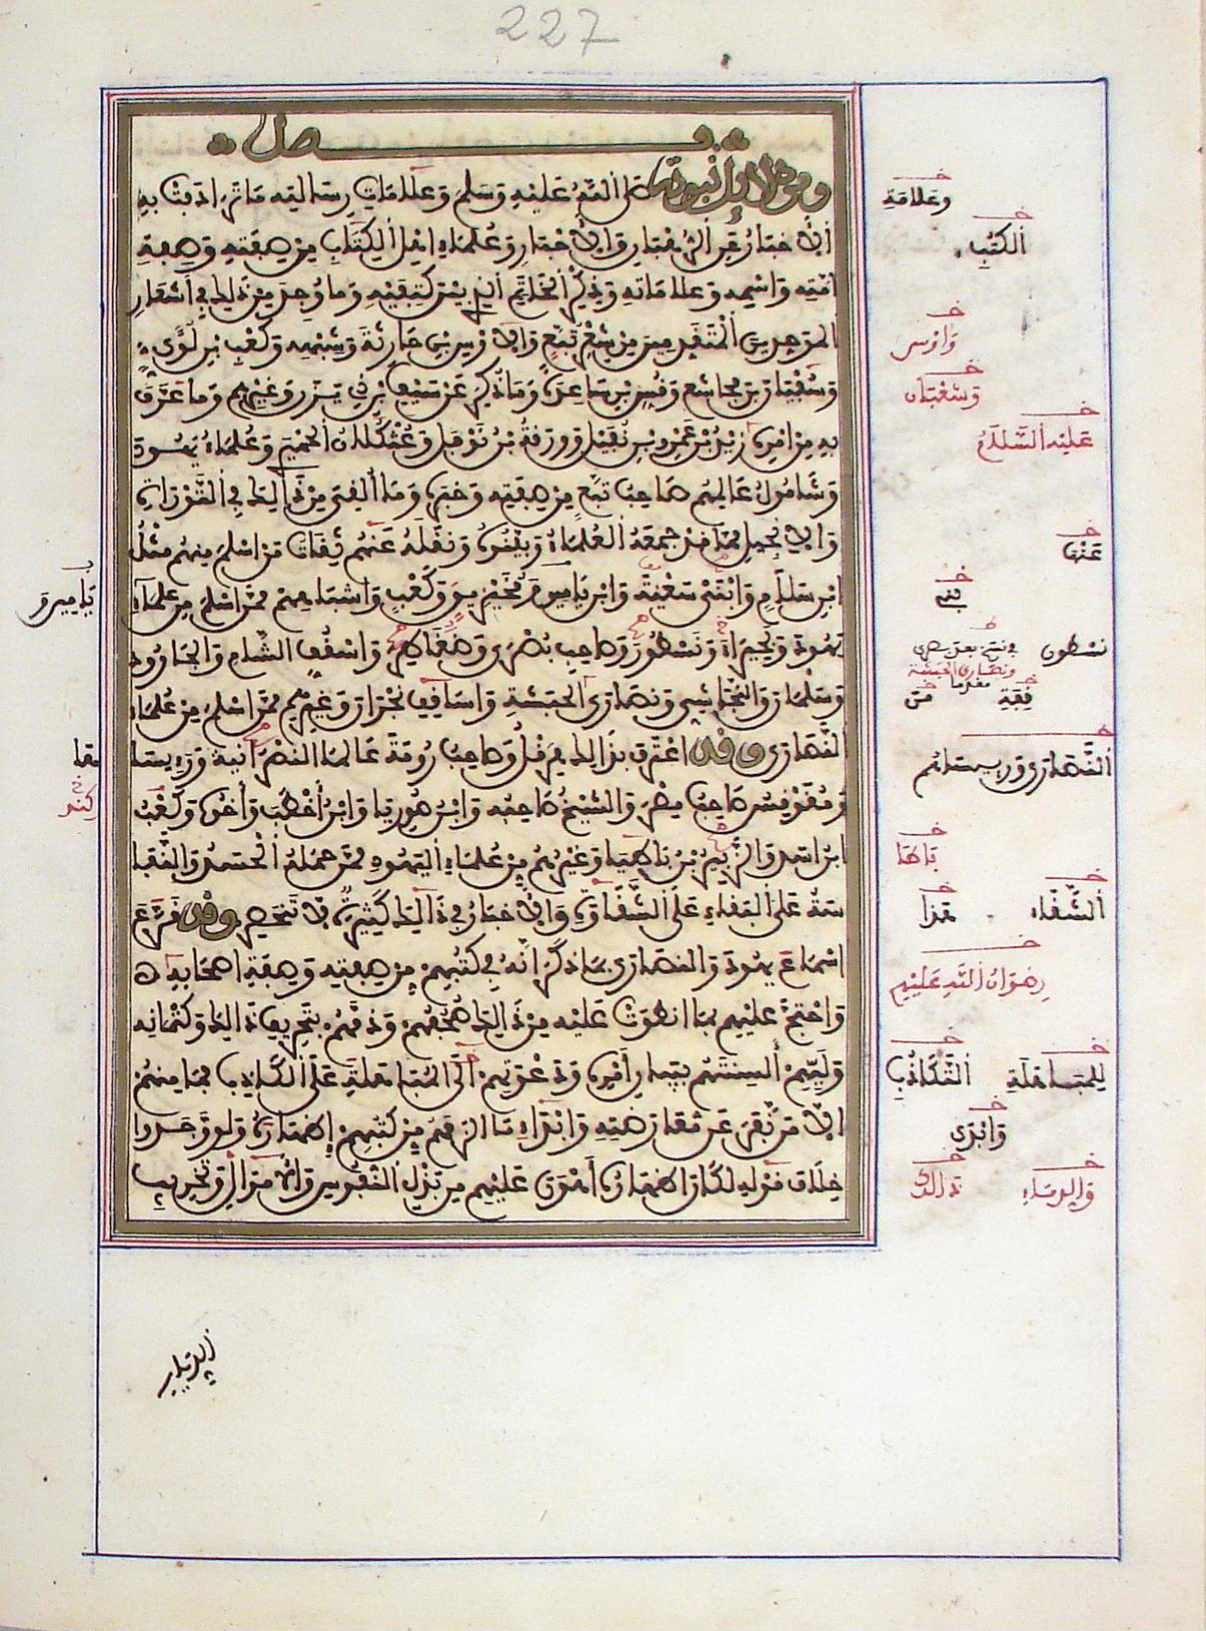 227
فصل
ومن دلائل نبوته صلى الله عليه وسلم وعلامات رسالته ما ترادفت به
الأخبار عن الرهبان والأحبار وعلماء أهل الكتاب من صفته وصفة
أمته واسمه وعلاماته وذكر الخاتم الذي بين كتفيه وما وجد من ذلك في أشعار
الموحدين المتقدمين من شعر تبع والأوس بن حارثة وشبهه وكعب بن لؤي
وسفيان بن مجاشع وقس بن ساعدة وما ذكر عن سيف بن ذي يزن وغيرهم وما عرف
به من أمره زيد بن عمرو بن نفيل وورقة بن نوفل وعثكلان الحميري وعلماء يهود
وشامول عالمهم صاحب تبع من صفته وخبره وما ألفي من ذلك في التوراة
والإنجيل مما قد جمعه العلماء وبينوه ونقله عنهم ثقات من أسلم منهم مثل
ابن سلام وابني سعية وابن يامين ومخيريق وكعب وأشباههم ممن أسلم من علماء
يهود وبحيرا ونسطور وصاحب بصرى وضغاطر وأسقف الشام والجارود
وسلمان والنجاشي ونصارى الحبشة وأساقف نجران وغيرهم ممن أسلم من علماء
النصارى وقد اعترف بذلك هرقل وصاحب رومة عالما النصرانية ورءيسا
ومقوقس صاحب مصر والشيخ صاحبه وابن صوريا وابن أخطب وأخوه وكعب
ابن أسد والزبير بن باطيا وغيرهم من علماء اليهود ممن حمله الحسد والنفا
سة على البقاء على الشقاوة والأخبار في ذلك كثيرة لا تنحصر وقد قرع
أسماع يهود والنصارى بما ذكر أنه في كتبهم من صفته وصفة أصحابه
واحتج عليهم بما انطوت عليه من ذلك صحفهم وذمهم بتحريف ذلك وكتمانه
وليهم ألسنتهم ببيان أمره ودعوتهم إلى المباهلة على الكاذب فما منهم
إلا من نفر عن معارضته وإبداء ما ألزمهم من كتبهم إظهاره ولو وجدوا
خلاف قوله لكان إظهاره أهون عليهم من بذل النفوس والأموال وتخريب
الديار
وعلامة
الكتب
وأوس
وسفيان
عليه السلام
عنها
نسطور
فقة
من
النصارى ورءيساهم
باطا
الشقاء
هذا
رضوان الله عليهم
للمباهلة
التكاذب
وابدى
والدماء
يامين